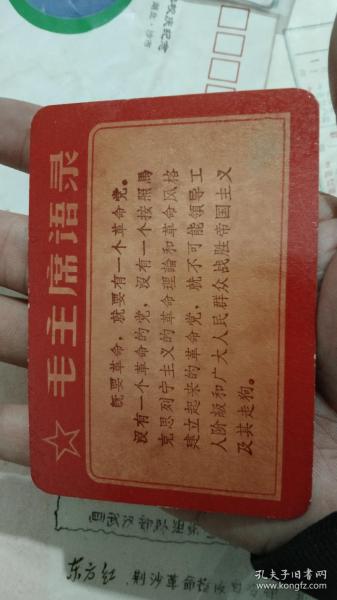 毛主席语录
既要革命，就要有一个革命党。
沒有一个革命的党，沒有一个按照馬
克思列宁主义的革命理論和革命风格
建立起来的革命党，就不可能領导工
人阶級和广大人民群众战胜帝国主义
及其走狗。
东方红
孔夫子旧书网
www.kongfz.com